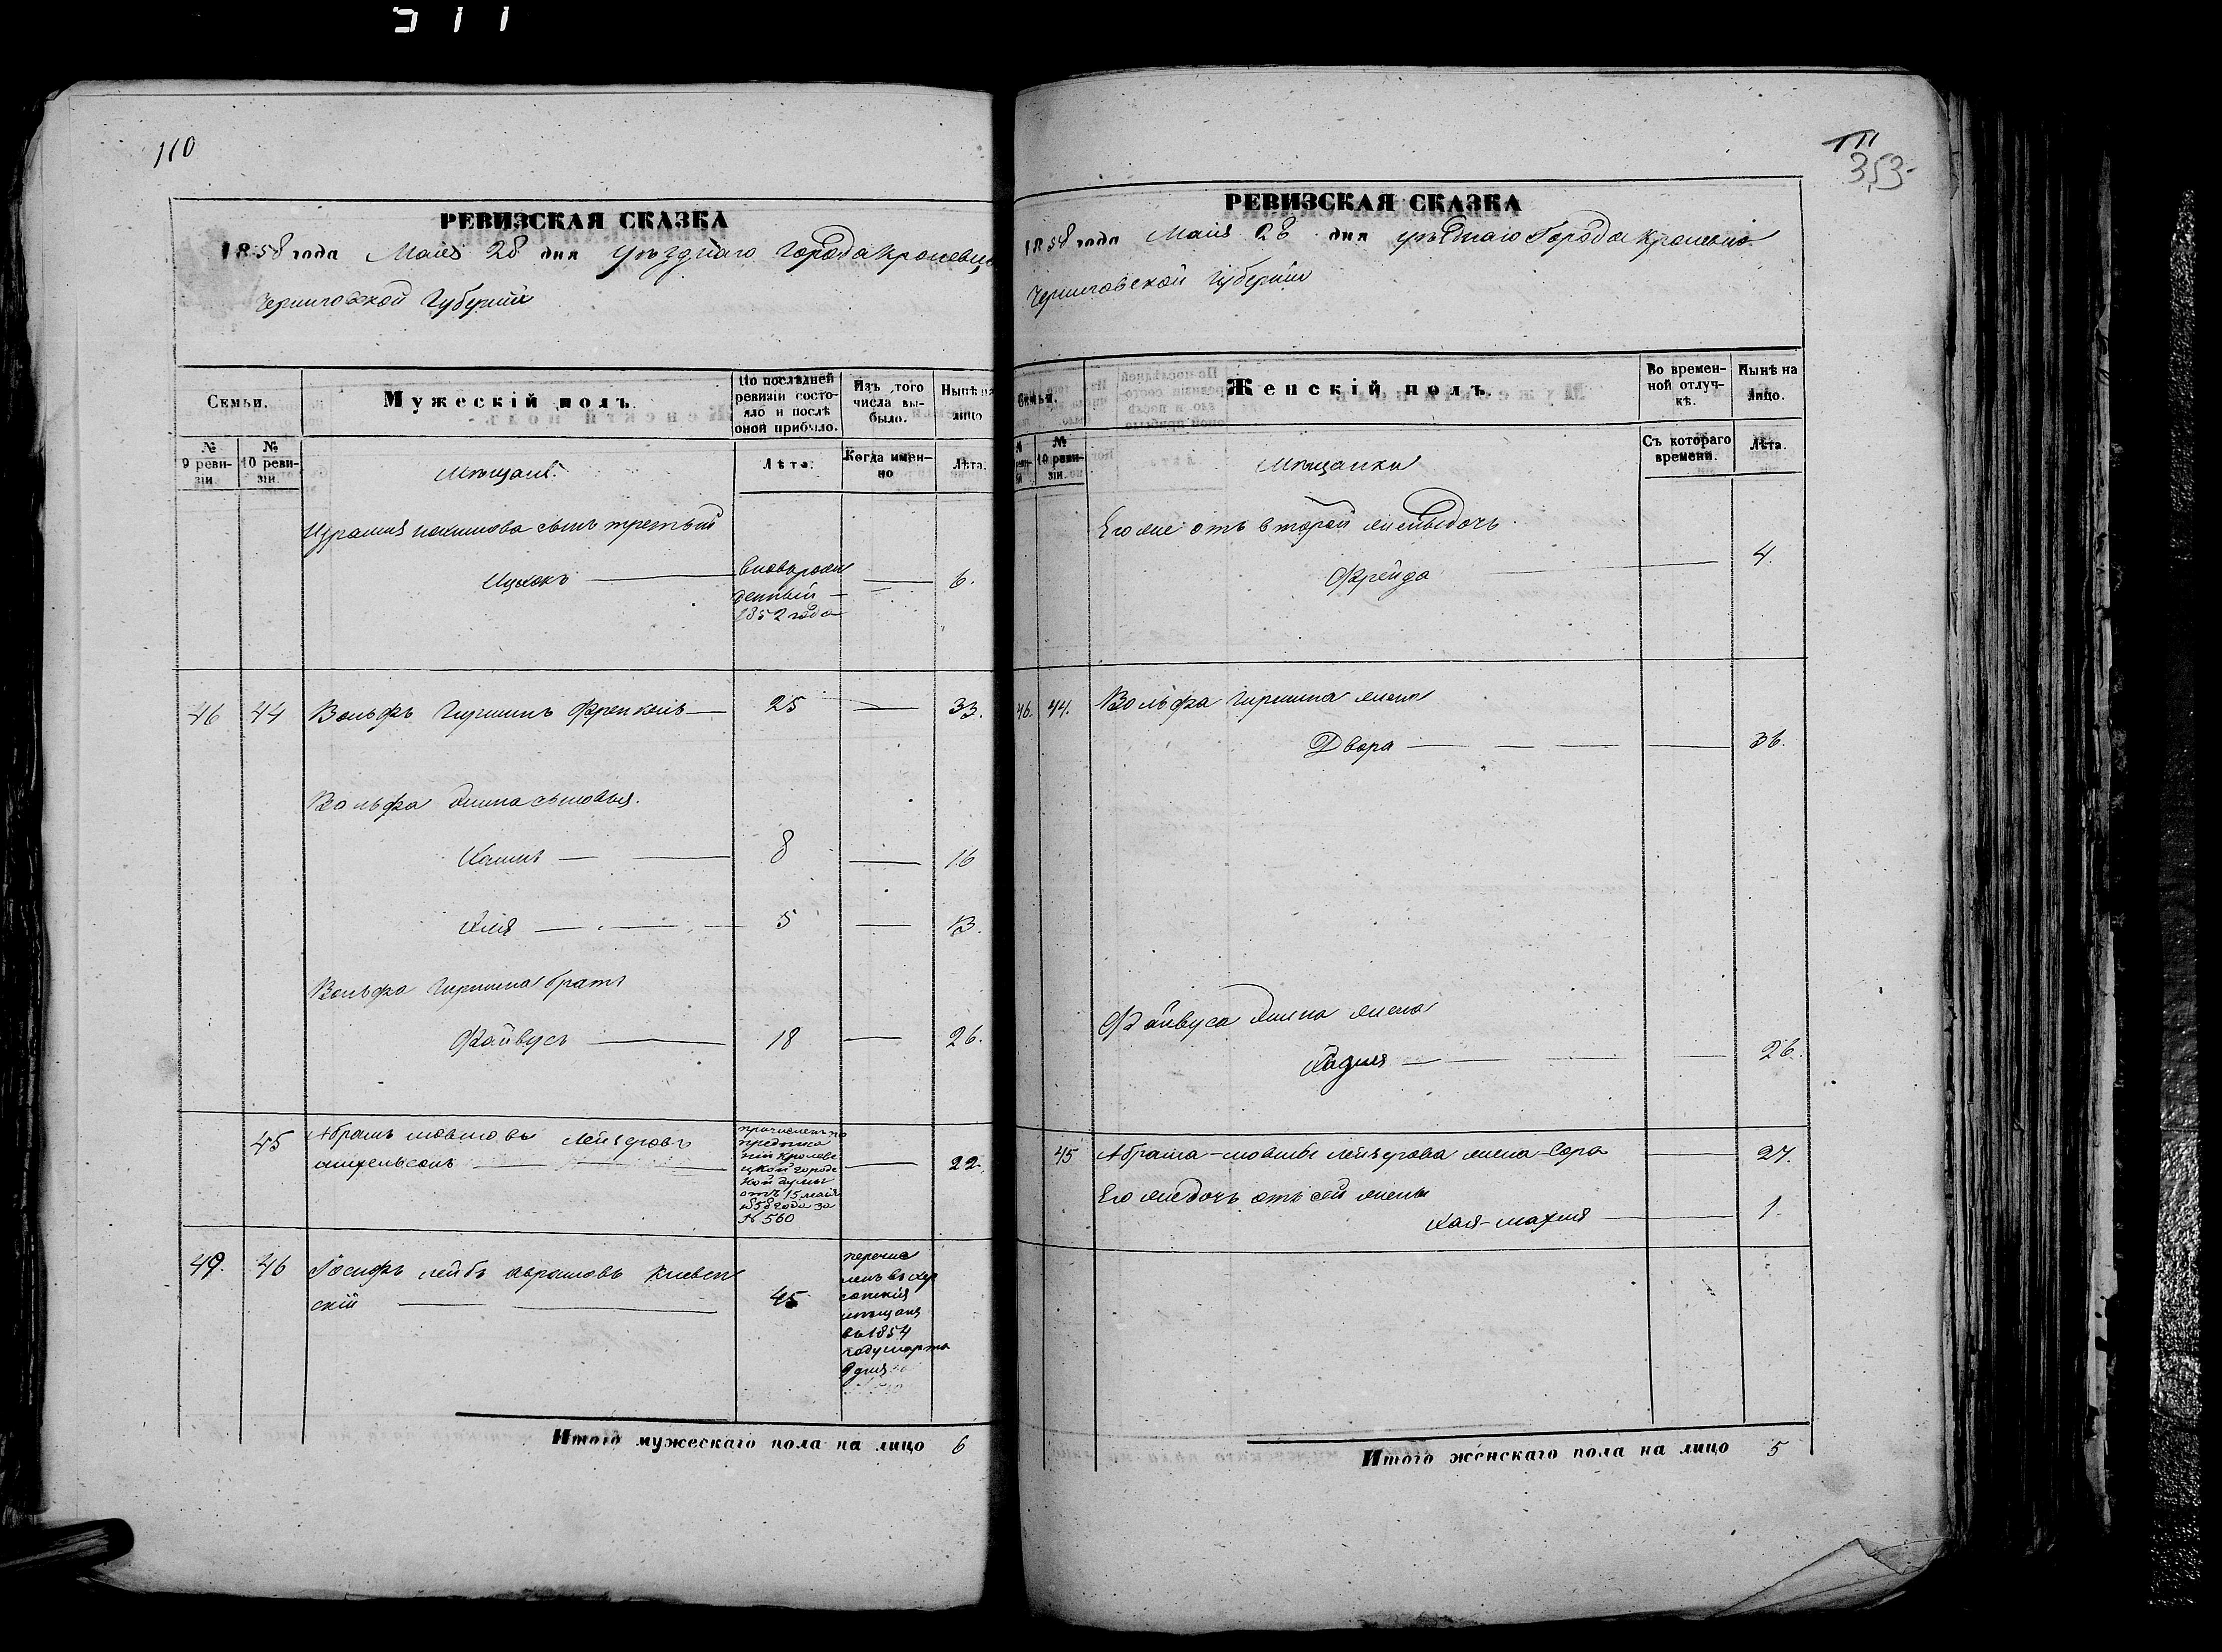 110
РЕВИЗСКАЯ СКАЗКА
1858 года Мая 28 дня уѣзднаго Города Кролевца
Черниговской Губерніи
Семьи.
Мужескій полъ.
По послѣдней ревизіи состояло и послѣ оной прибыло.
Изъ того числа выбыло.
Нынѣ на лицо
№ 9 ревизіи.
№ 10 ревизіи.
Мѣщане.
Лѣта.
Когда именно
Лѣта.
Израиля сынъ третьій
Ицкокъ — вноворож
денный —
1852 года — 6.
46 44 Вольфъ Гиршинъ Френкель — 25 — 33.
Вольфа Гиршина сыновья.
8 — 16
5 — 13.
Вольфа Гиршина братъ
Файвусъ — 18 — 26.
45 Абрамъ мовша Лейзеровъ
причисленъ по
Кролеве
цкой городс
кой думы
отъ 15 мая
1858 года за
№ 560
— 22.
49. 46 Іосифъ лейбъ Аврамовъ Киевск
скій — 45
перечис
ленъ въ хер
сонскія
мѣщане
въ 1854
году марта
9 дня
Итого мужескаго пола на лицо 6
111
353
РЕВИЗСКАЯ СКАЗКА
1858 года Мая 28 дня уѣзднаго Города Кролевца
Черниговской Губерніи
Семьи.
Женскій полъ.
Во временной отлучкѣ.
Нынѣ на лицо.
№ 10 ревизіи.
Мѣщанки
Съ котораго времени.
Лѣта.
Его же отъ второй жены дочь
Фрейда — 4.
46. 44. Вольфа Гиршина жена
Двора — — — — 36.
Файвуса Гиршина жена
— — — 26.
45 Абрама-мовши Лейзерова жена Сора — 27.
Его же дочь отъ сей жены
Хая- — 1.
Итого женскаго пола на лицо 5